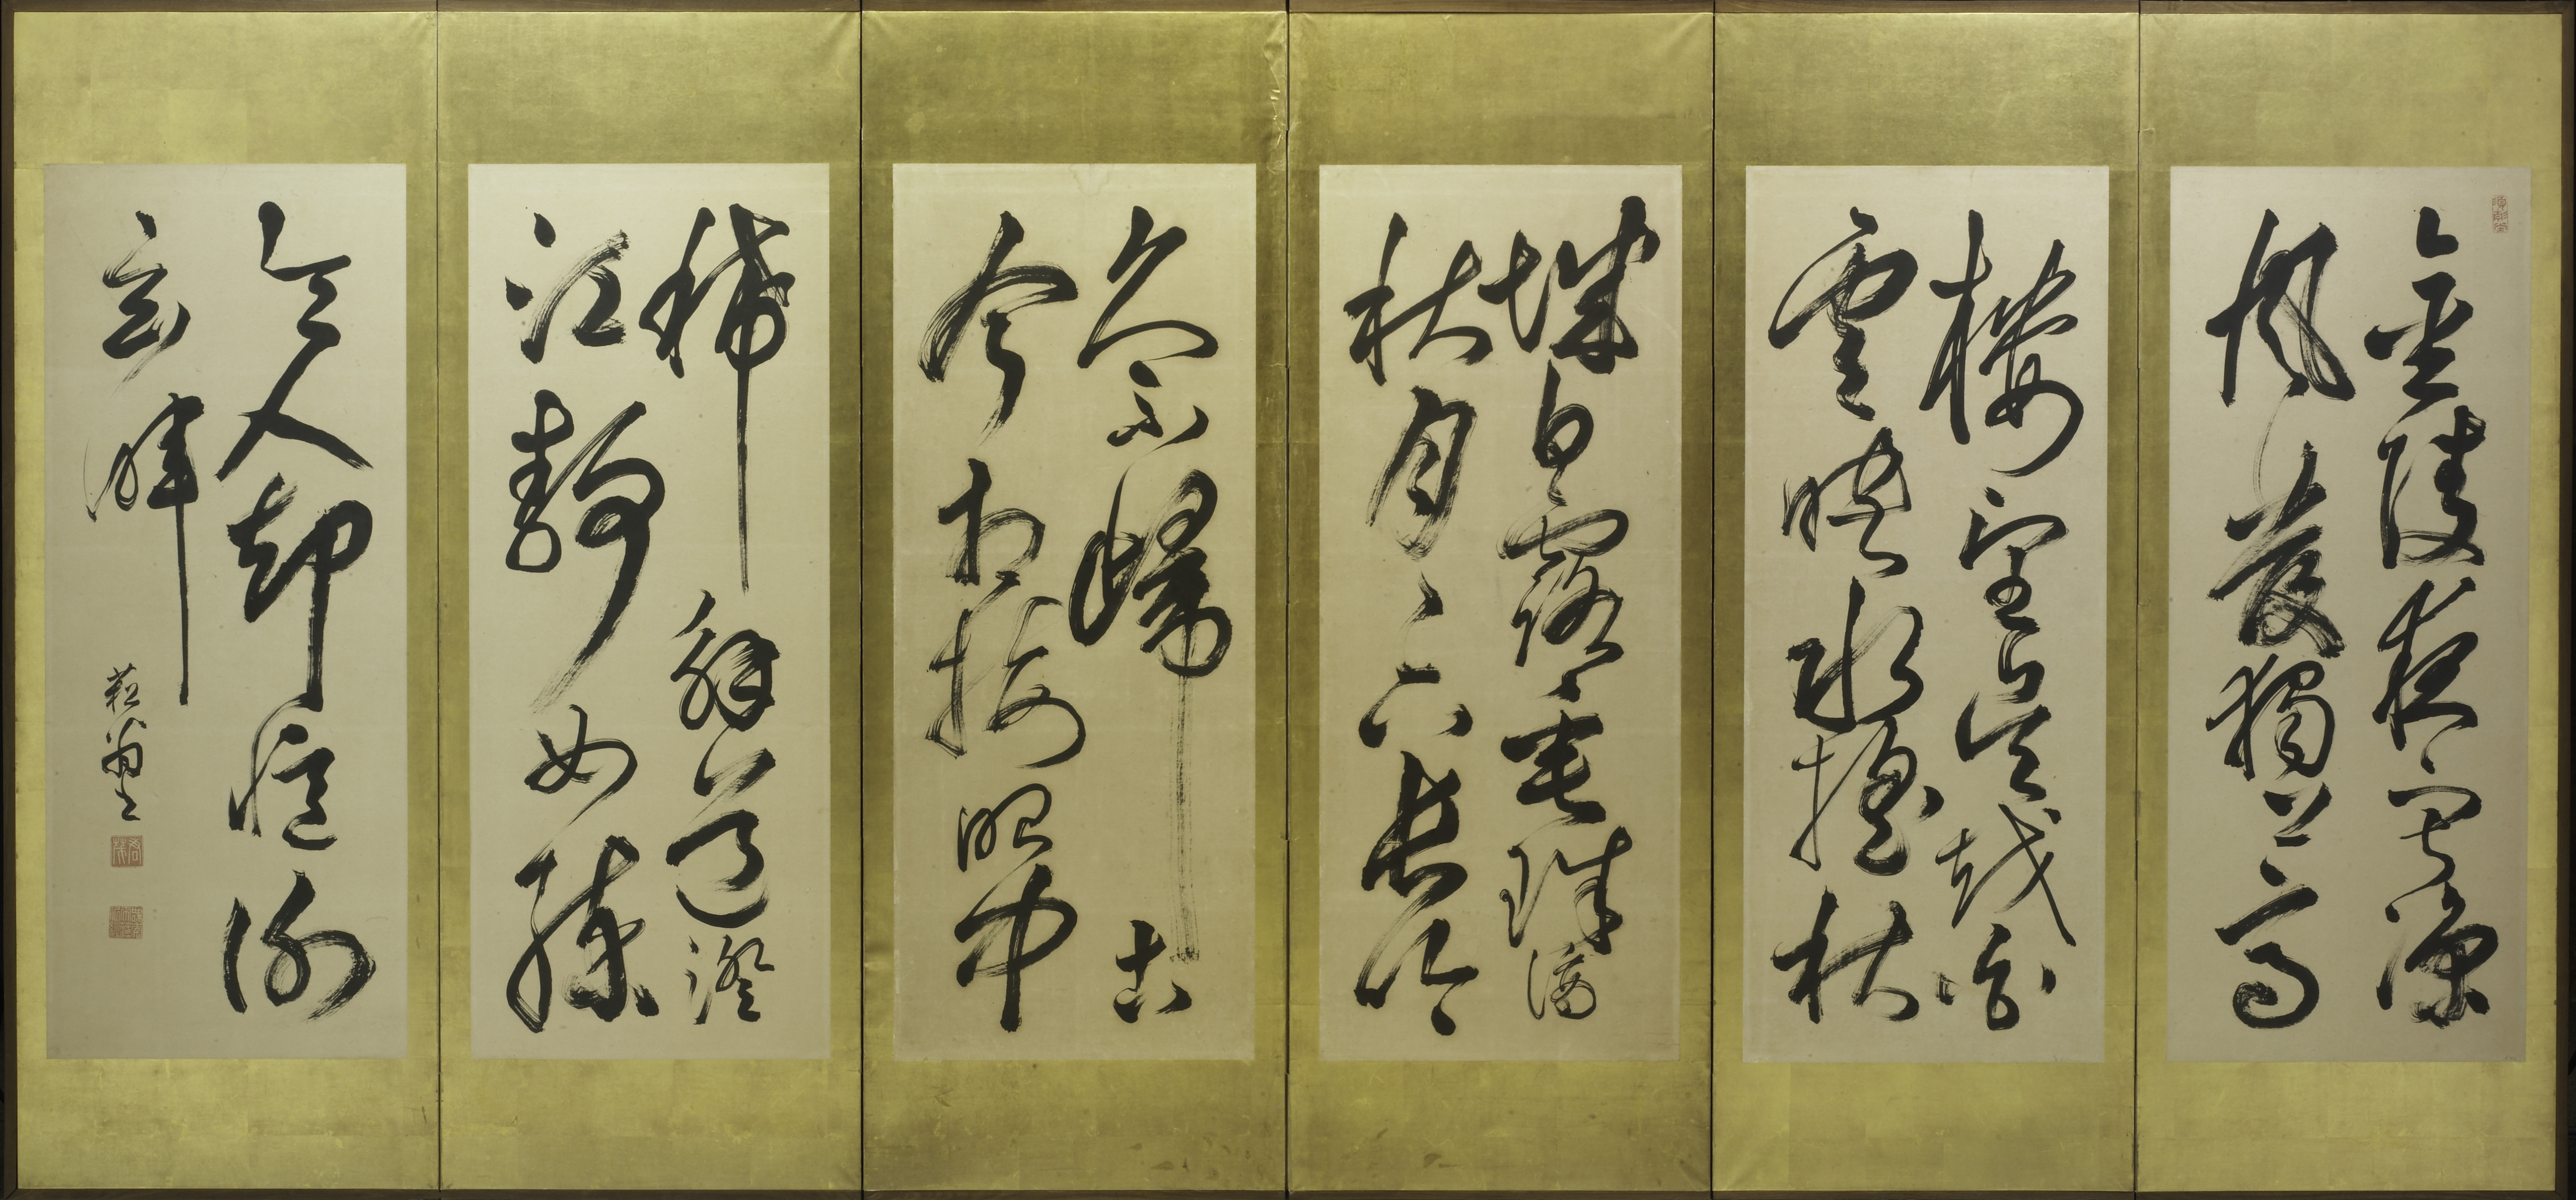 金陵夜寂涼
風發獨上高
樓望吳越白
雲映水搖秋
城白露垂珠滴
秋月〻下長吟
久不歸古
今相接眼中
稀解道澄
江靜如練
令人却憶謝
玄暉
菘翁